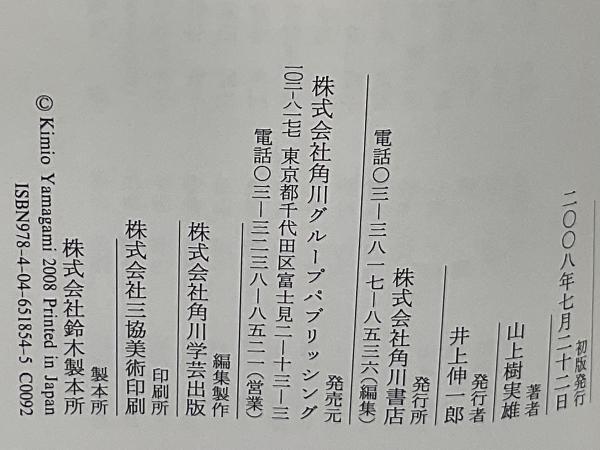 二〇〇八年七月二十二日 初版発行
著者 山上樹実雄
発行者 井上伸一郎
発行所 株式会社角川書店
電話〇三―三八一七―八五三六(編集)
発売元 株式会社角川グループパブリッシング
一〇二―八一七七 東京都千代田区富士見二―十三―三
電話〇三―三二三八―八五二一(営業)
編集製作 株式会社角川学芸出版
印刷所 株式会社三協美術印刷
製本所 株式会社鈴木製本所
© Kimio Yamagami 2008 Printed in Japan
ISBN978-4-04-651854-5 C0092